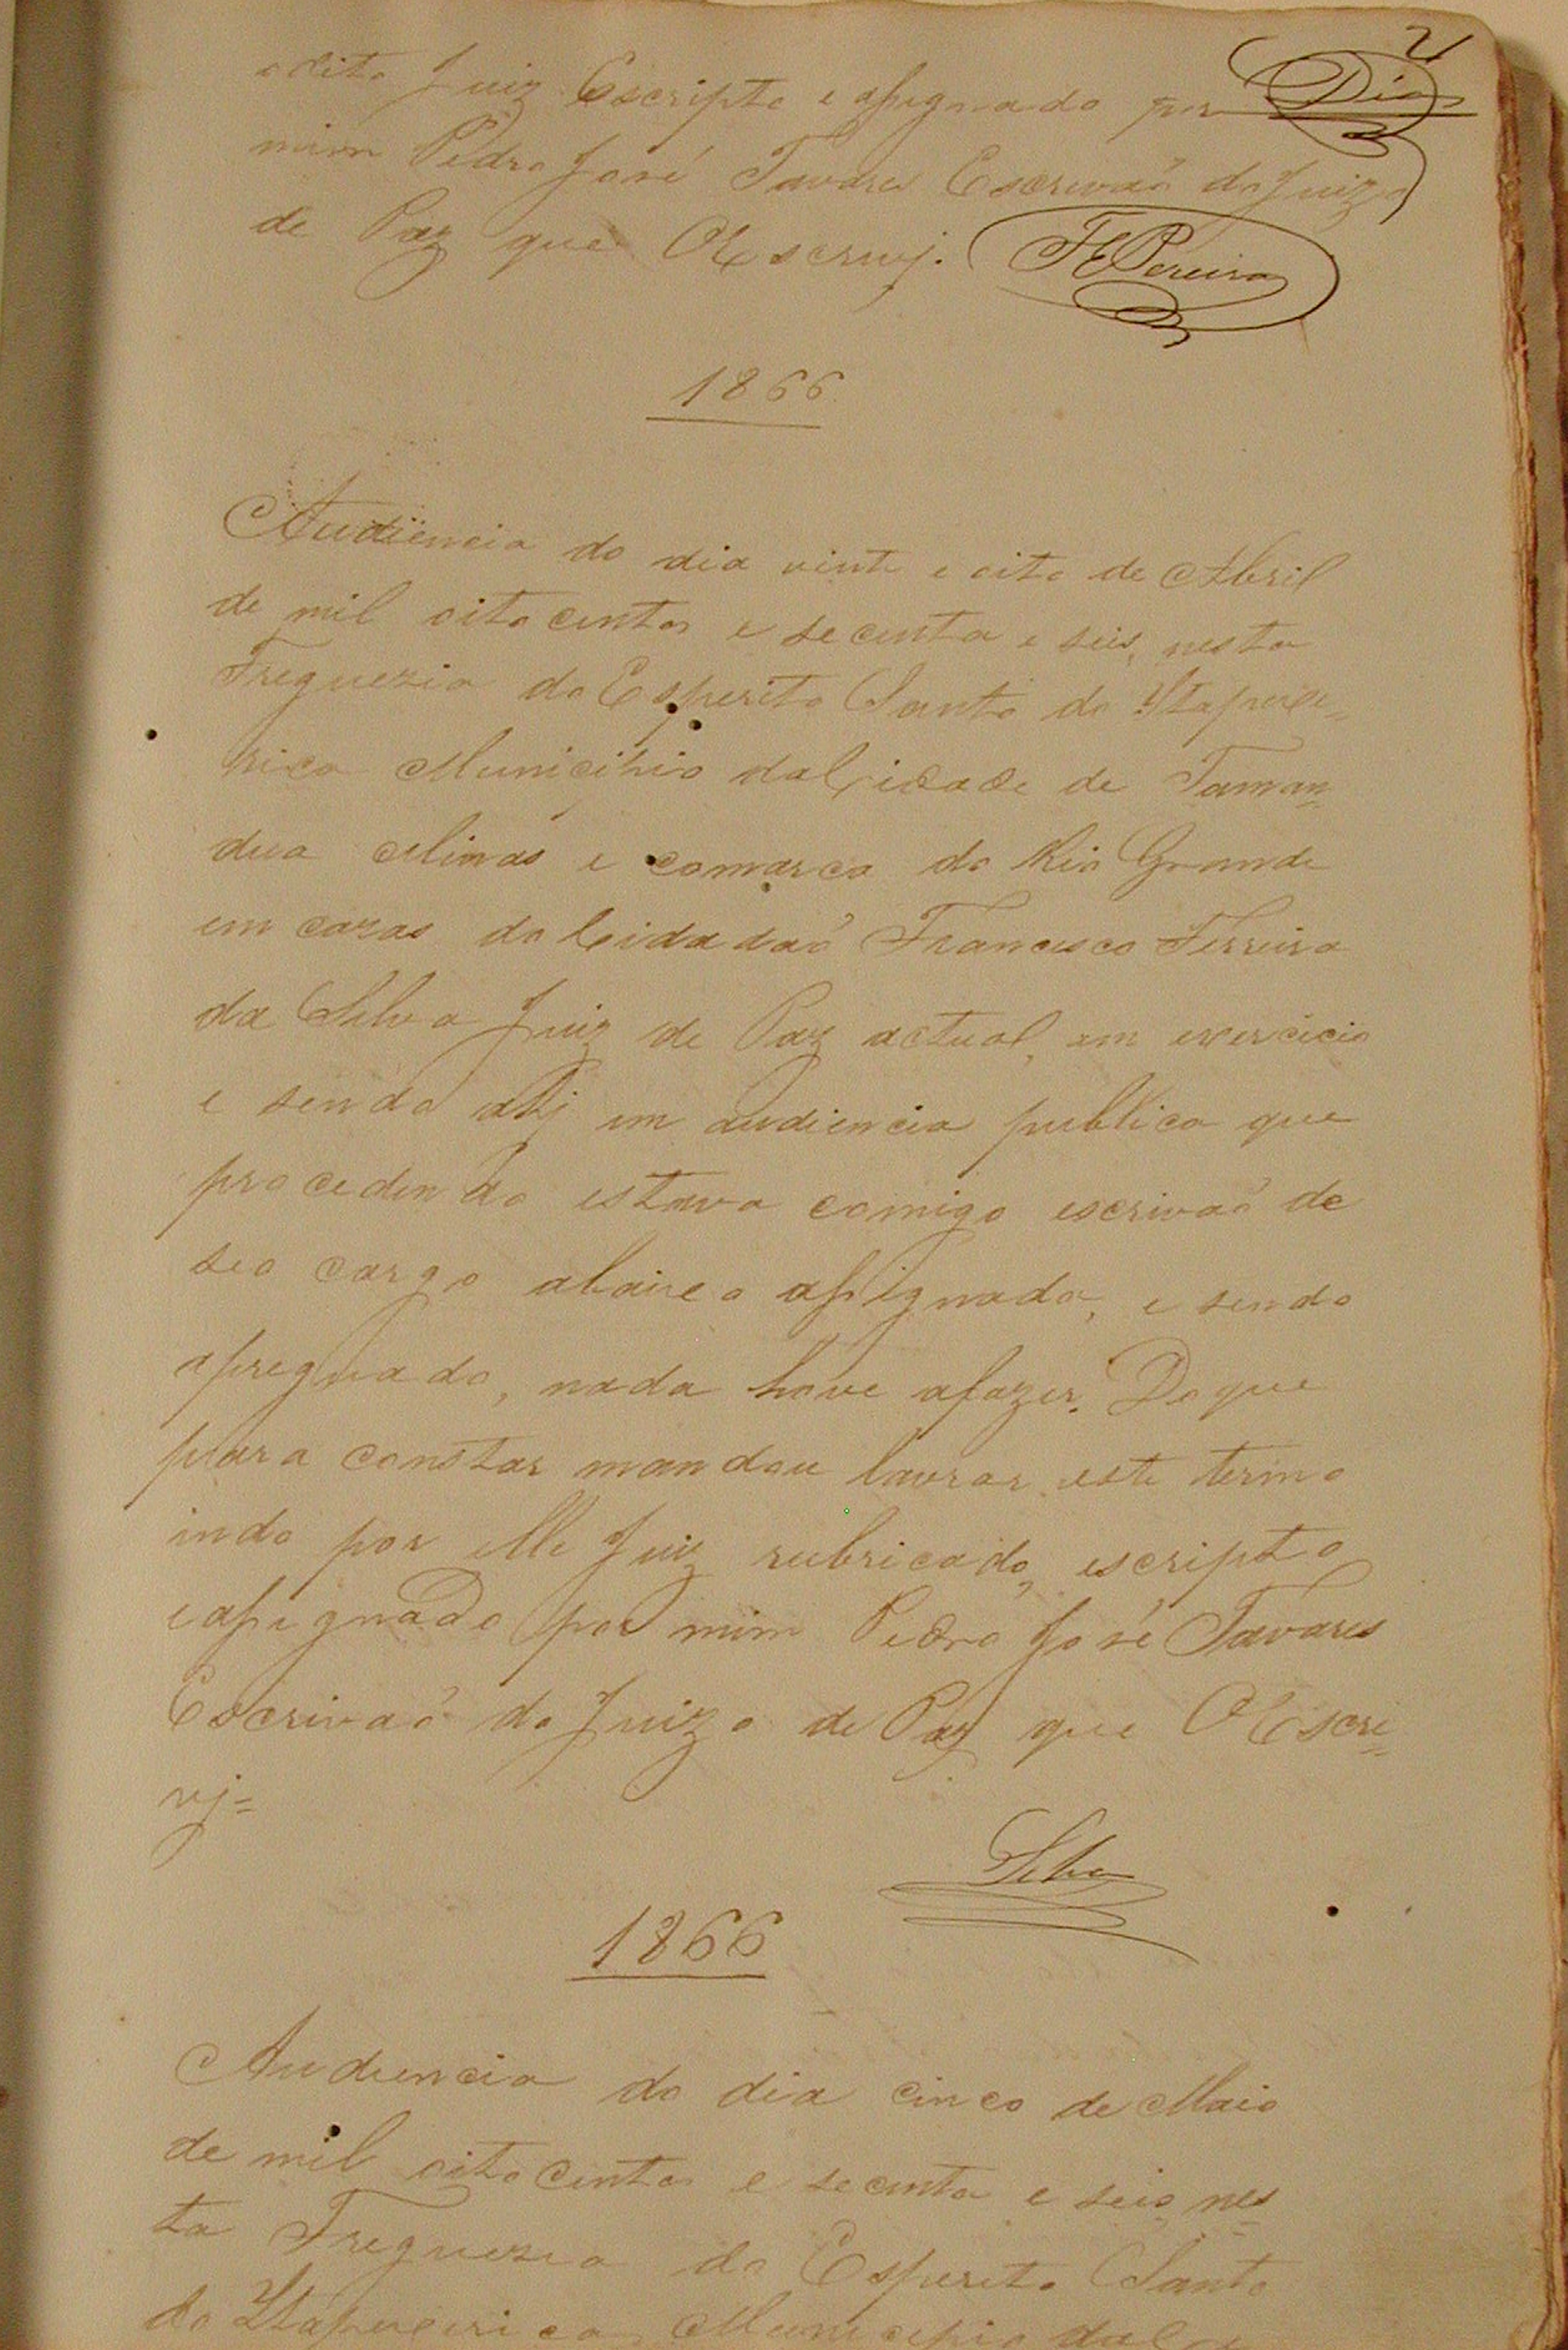 21
Dias
o dito Juiz Escripto e assignado por
mim Pedro José Tavares Escrivaõ do Juizo
de Paz que OEscrivj. FEPereira
1866
Audiencia do dia vinte e oito de Abril
de mil oito centos e secenta e seis, nesta
Freguezia do Esperito Santo do Itapece=
rica Municipio da Cidade de Taman=
dua Minas e comarca do Rio Grande
em cazas do Cidadaõ Francisco Ferreira
da Silva Juiz de Paz actual, em exercicio
e sendo ahj em audiencia publica que
procedendo estava comigo escrivaõ de
seo cargo abaixo assignado, e sendo
apregoado, nada houve afazer. Do que
para constar mandou lavrar este termo
indo por elle Juiz rubricado, escripto
eassignado por mim Pedro José Tavares
Escrivaõ do Juizo de Paz que OEscri=
vj=
Silva
1866
Audiencia do dia cinco de Maio
de mil oito centos e secenta e seis nes=
ta Freguezia do Esperito Santo
do Itapecerica Municipio da